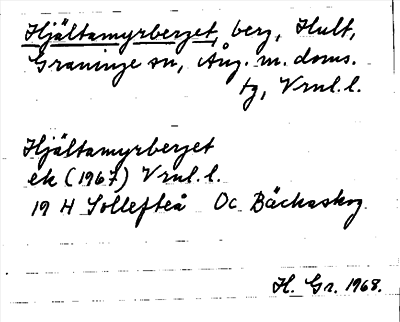 Hjältamyrberget, berg, Hult,
Graninge sn, Ång. m. doms.
tg, Vrnl. l.
Hjältamyrberget
ek (1967) Vrnl. l.
19 H Sollefteå Oc Bäckaskog
H. Gr. 1968.